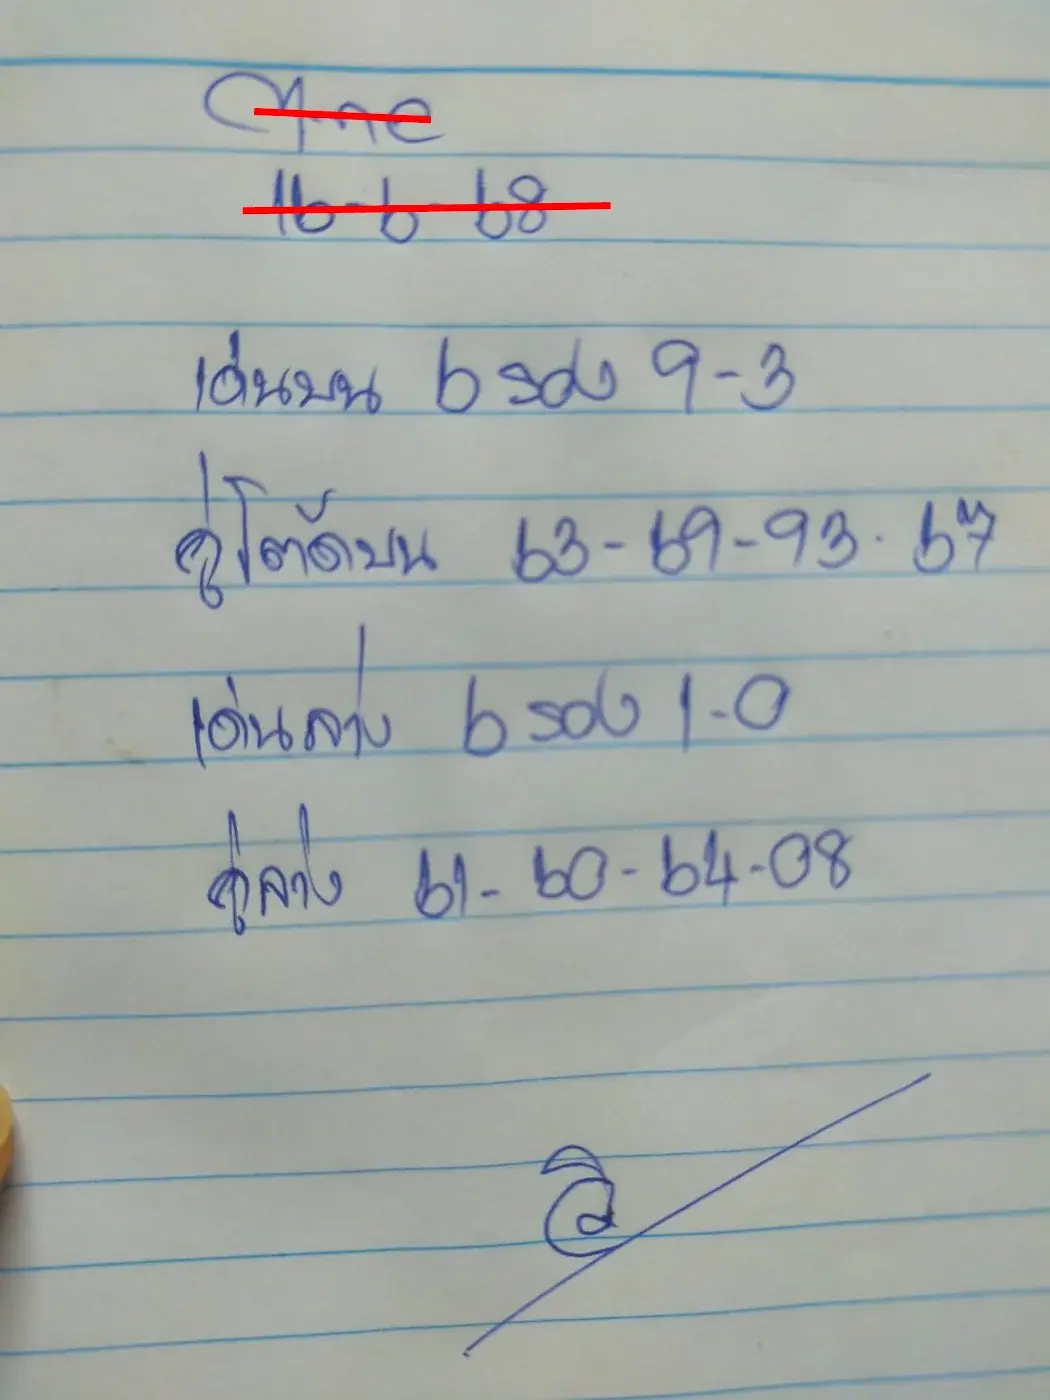 16-6-68
เด่นบน 6 รอง 9-3
คู่โต๊ดบน 63-69-93. 67
เด่นล่าง 6 รอง 1-0
คู่ล่าง 61-60-64-08